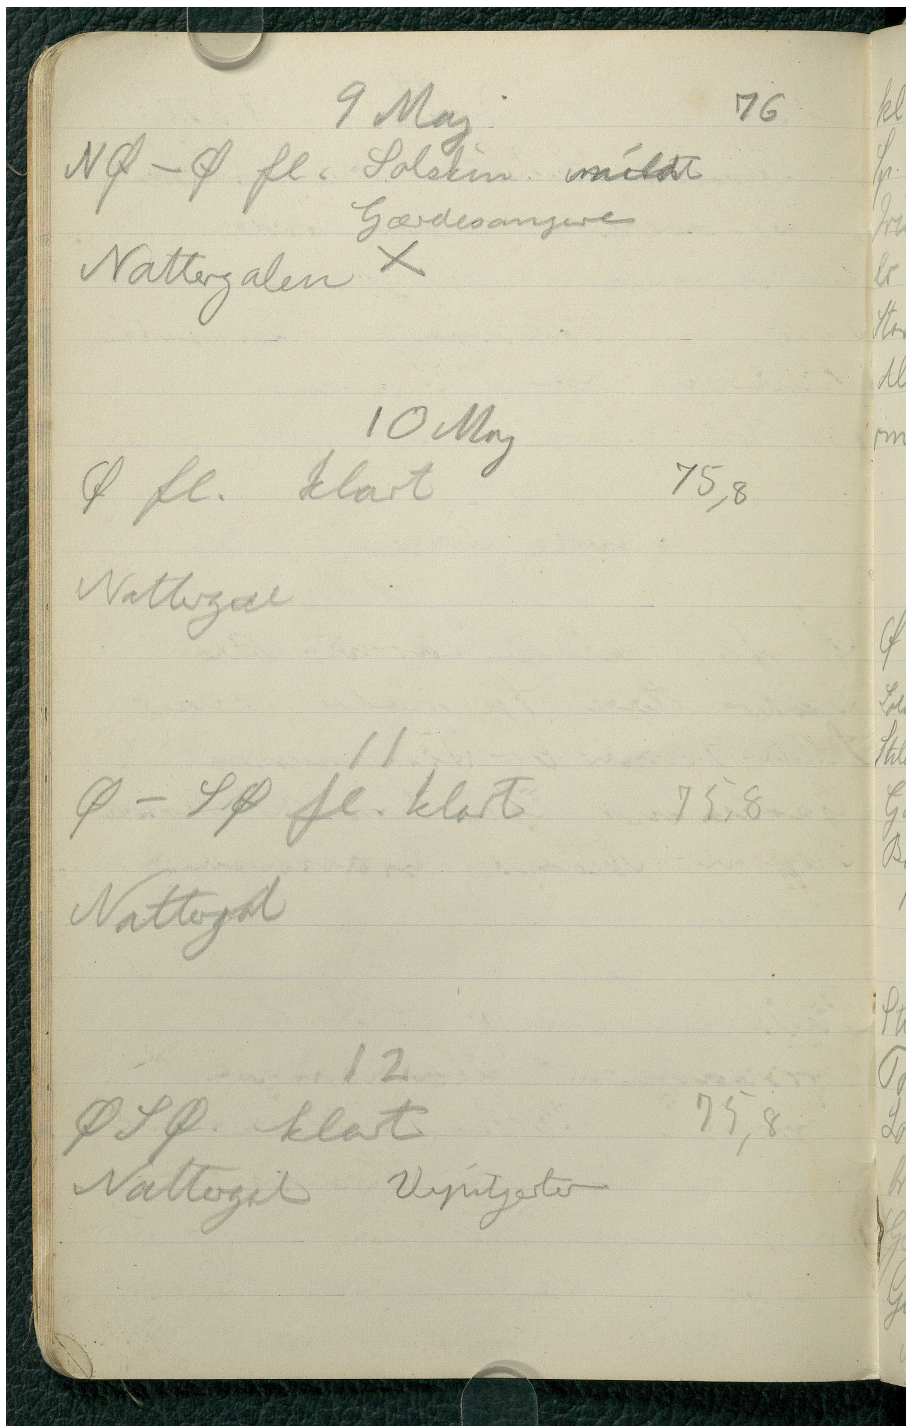 9 Maj 76
NØ - Ø fl. Solskin. mildt
Gærdesangere
Nattergalen X
10 Maj
Ø fl. klart 75,8
Nattergal
11
Ø - SØ fl. klart 75,8
Nattergal
12
ØSØ. klart 75,8
Nattergal